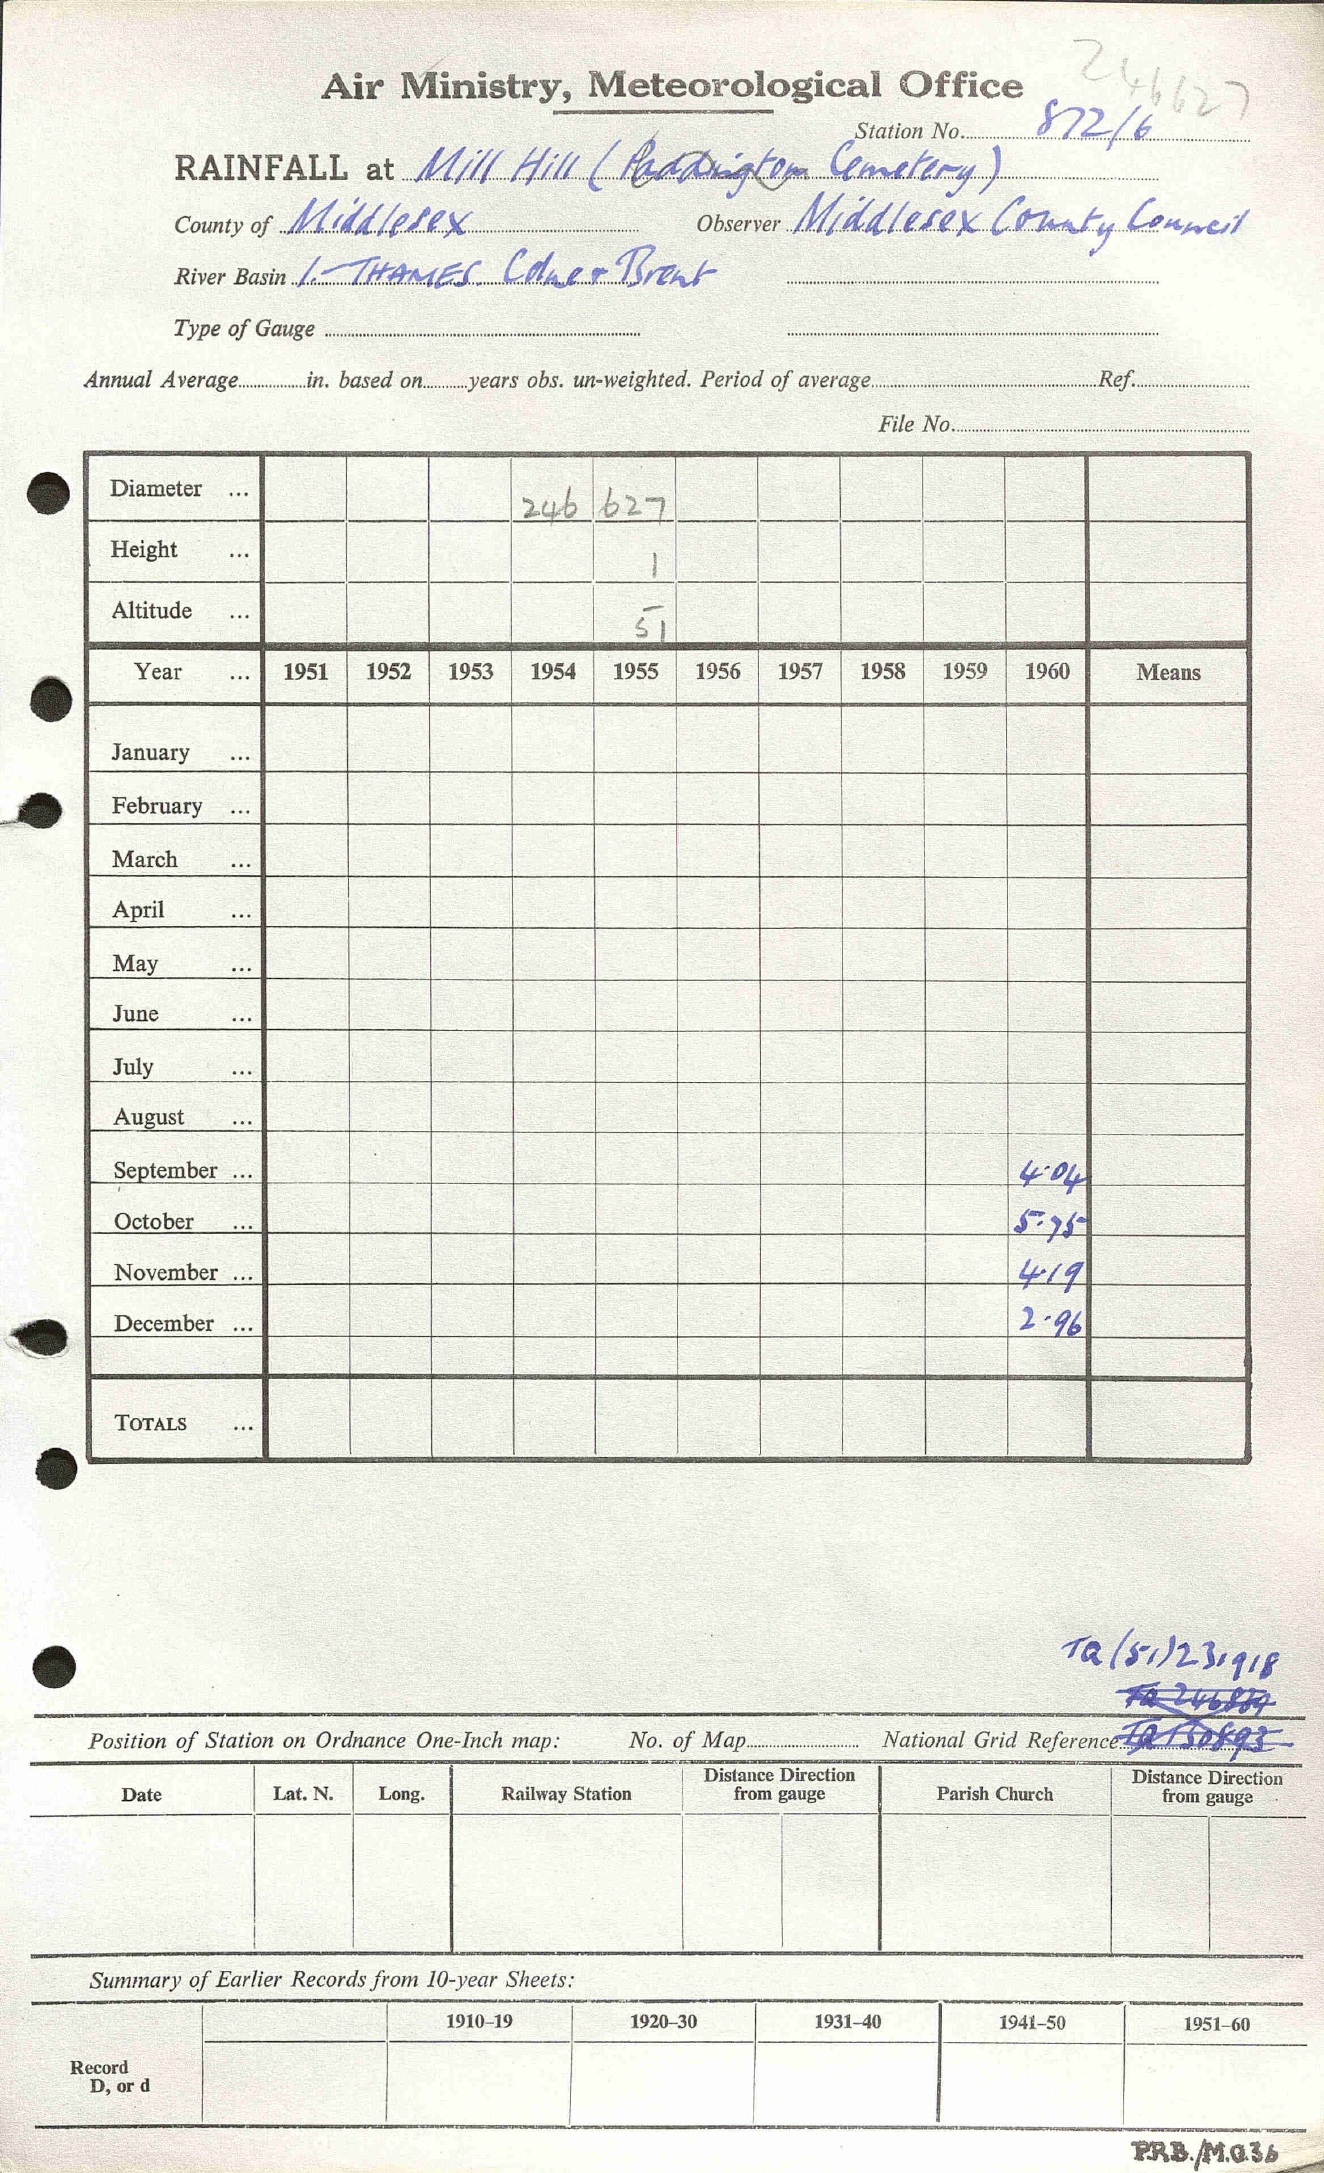 246627
Air Ministry, Meteorological Office
Station No. 872/6
RAINFALL at Mill Hill (Paddington Cemetery)
County of Middlesex Observer Middlesex County Council
River Basin 1. THAMES. Colne + Brent
Type of Gauge
Annual Average in. based on years obs. un-weighted. Period of average Ref.
File No.
Diameter ... 246 627
Height ... 1
Altitude ... 51
Year ... 1951 1952 1953 1954 1955 1956 1957 1958 1959 1960 Means
January ...
February ...
March ...
April ...
May ...
June ...
July ...
August ...
September ... 4·04
October ... 5·75
November ... 4·19
December ... 2·96
TOTALS ...
TQ (51) 231918
TQ 246889
Position of Station on Ordnance One-Inch map: No. of Map National Grid Reference TQ 150893
Date Lat. N. Long. Railway Station Distance Direction from gauge Parish Church Distance Direction from gauge
Summary of Earlier Records from 10-year Sheets:
1910–19 1920–30 1931–40 1941–50 1951–60
Record
D, or d
P.R.B./M.O.36